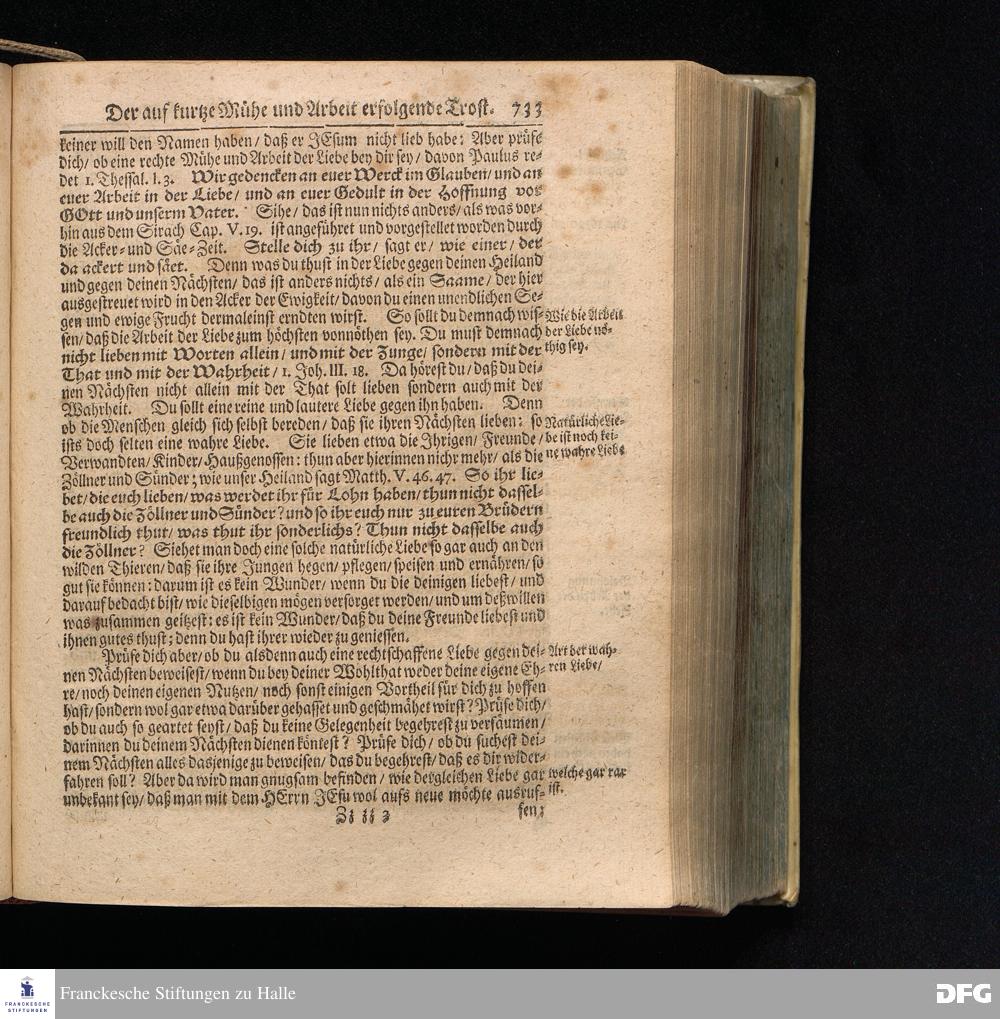 Der auf kurtze Mühe und Arbeit erfolgende Trost. 733
keiner will den Namen haben/ daß er JEsum nicht lieb habe: Aber prüfe
dich/ ob eine rechte Mühe und Arbeit der Liebe bey dir sey/ davon Paulus re-
det 1. Thessal. I. 3. Wir gedencken an euer Werck im Glauben/ und an
euer Arbeit in der Liebe/ und an euer Gedult in der Hoffnung vor
GOtt und unserm Vater. Sihe/ das ist nun nichts anders/ als was vor-
hin aus dem Sirach Cap. V. 19. ist angeführet und vorgestellet worden durch
die Acker- und Säe-Zeit. Stelle dich zu ihr/ sagt er/ wie einer/ der
da ackert und säet. Denn was du thust in der Liebe gegen deinen Heiland
und gegen deinen Nächsten/ das ist anders nichts/ als ein Saame/ der hier
ausgestreuet wird in den Acker der Ewigkeit/ davon du einen unendlichen Se-
gen und ewige Frucht dermaleinst erndten wirst. So sollt du demnach wis-
sen/ daß die Arbeit der Liebe zum höchsten vonnöthen sey. Du must demnach
nicht lieben mit Worten allein/ und mit der Zunge/ sondern mit der
That und mit der Wahrheit/ 1. Joh. III. 18. Da hörest du/ daß du dei-
nen Nächsten nicht allein mit der That solt lieben sondern auch mit der
Wahrheit. Du sollt eine reine und lautere Liebe gegen ihn haben. Denn
ob die Menschen gleich sich selbst bereden/ daß sie ihren Nächsten lieben: so
ists doch selten eine wahre Liebe. Sie lieben etwa die Ihrigen/ Freunde/
Verwandten/ Kinder/ Haußgenossen: thun aber hierinnen nichr mehr/ als die
Zöllner und Sünder; wie unser Heiland sagt Matth. V. 46. 47. So ihr lie-
bet/ die euch lieben/ was werdet ihr für Lohn haben/ thun nicht dassel-
be auch die Zöllner und Sünder? und so ihr euch nur zu euren Brüdern
freundlich thut/ was thut ihr sonderlichs? Thun nicht dasselbe auch
die Zöllner? Siehet man doch eine solche natürliche Liebe so gar auch an den
wilden Thieren/ daß sie ihre Jungen hegen/ pflegen/ speisen und ernähren/ so
gut sie können: darum ist es kein Wunder/ wenn du die deinigen liebest/ und
darauf bedacht bist/ wie dieselbigen mögen versorget werden/ und um deßwillen
was zusammen geitzest: es ist kein Wunder/ daß du deine Freunde liebest und
ihnen gutes thust; denn du hast ihrer wieder zu geniessen.
Prüfe dich aber/ ob du alsdenn auch eine rechtschaffene Liebe gegen dei-
nen Nächsten beweisest/ wenn du bey deiner Wohlthat weder deine eigene Eh-
re/ noch deinen eigenen Nutzen/ noch sonst einigen Vortheil für dich zu hoffen
hast/ sondern wol gar etwa darüber gehasset und geschmähet wirst? Prüfe dich/
ob du auch so geartet seyst/ daß du keine Gelegenheit begehrest zu versäumen/
darinnen du deinem Nächsten dienen köntest? Prüfe dich/ ob du suchest dei-
nem Nächsten alles dasjenige zu beweisen/ das du begehrest/ daß es dir wider-
fahren soll? Aber da wird man gnugsam befinden/ wie dergleichen Liebe gar
unbekant sey/ daß man mit dem HErrn JEsu wol aufs neue möchte ausruf-
Zz zz 3 fen:
Wie die Arbeit
der Liebe nö-
thig sey.
Natürliche Lie-
be ist noch kei-
ne wahre Liebe
Art der wah-
ren Liebe/
welche gar rar
ist.
FRANCKESCHE
STIFTUNGEN
Franckesche Stiftungen zu Halle
DFG